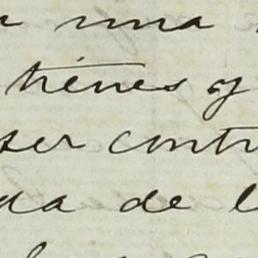 una
tienes y
ser contr
da de l